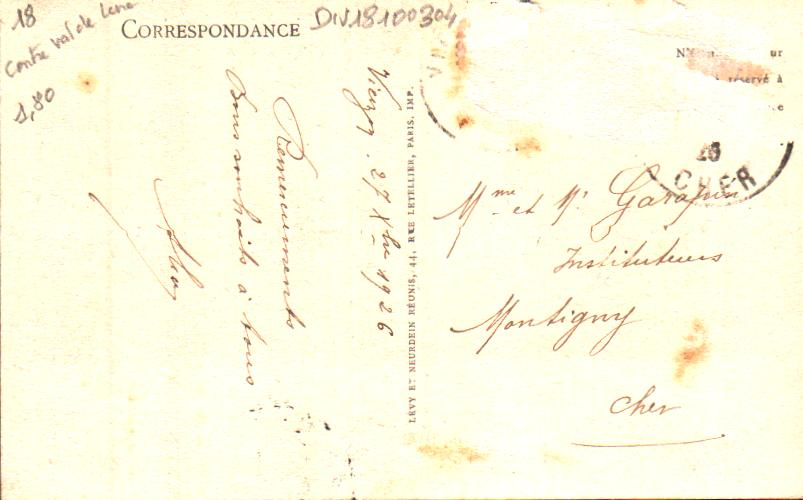 18
Centre val de Loire
1,80
CORRESPONDANCE
DIV18100304
Vierzon. 27 Xbre 1926
Remerciements
Bons souhaits à tous
LÉVY ET NEURDEIN RÉUNIS, 44, RUE LETELLIER, PARIS, IMP.
ur
réservé à
e
26
CHER
Mme et Mr
Instituteurs
Montigny
Cher